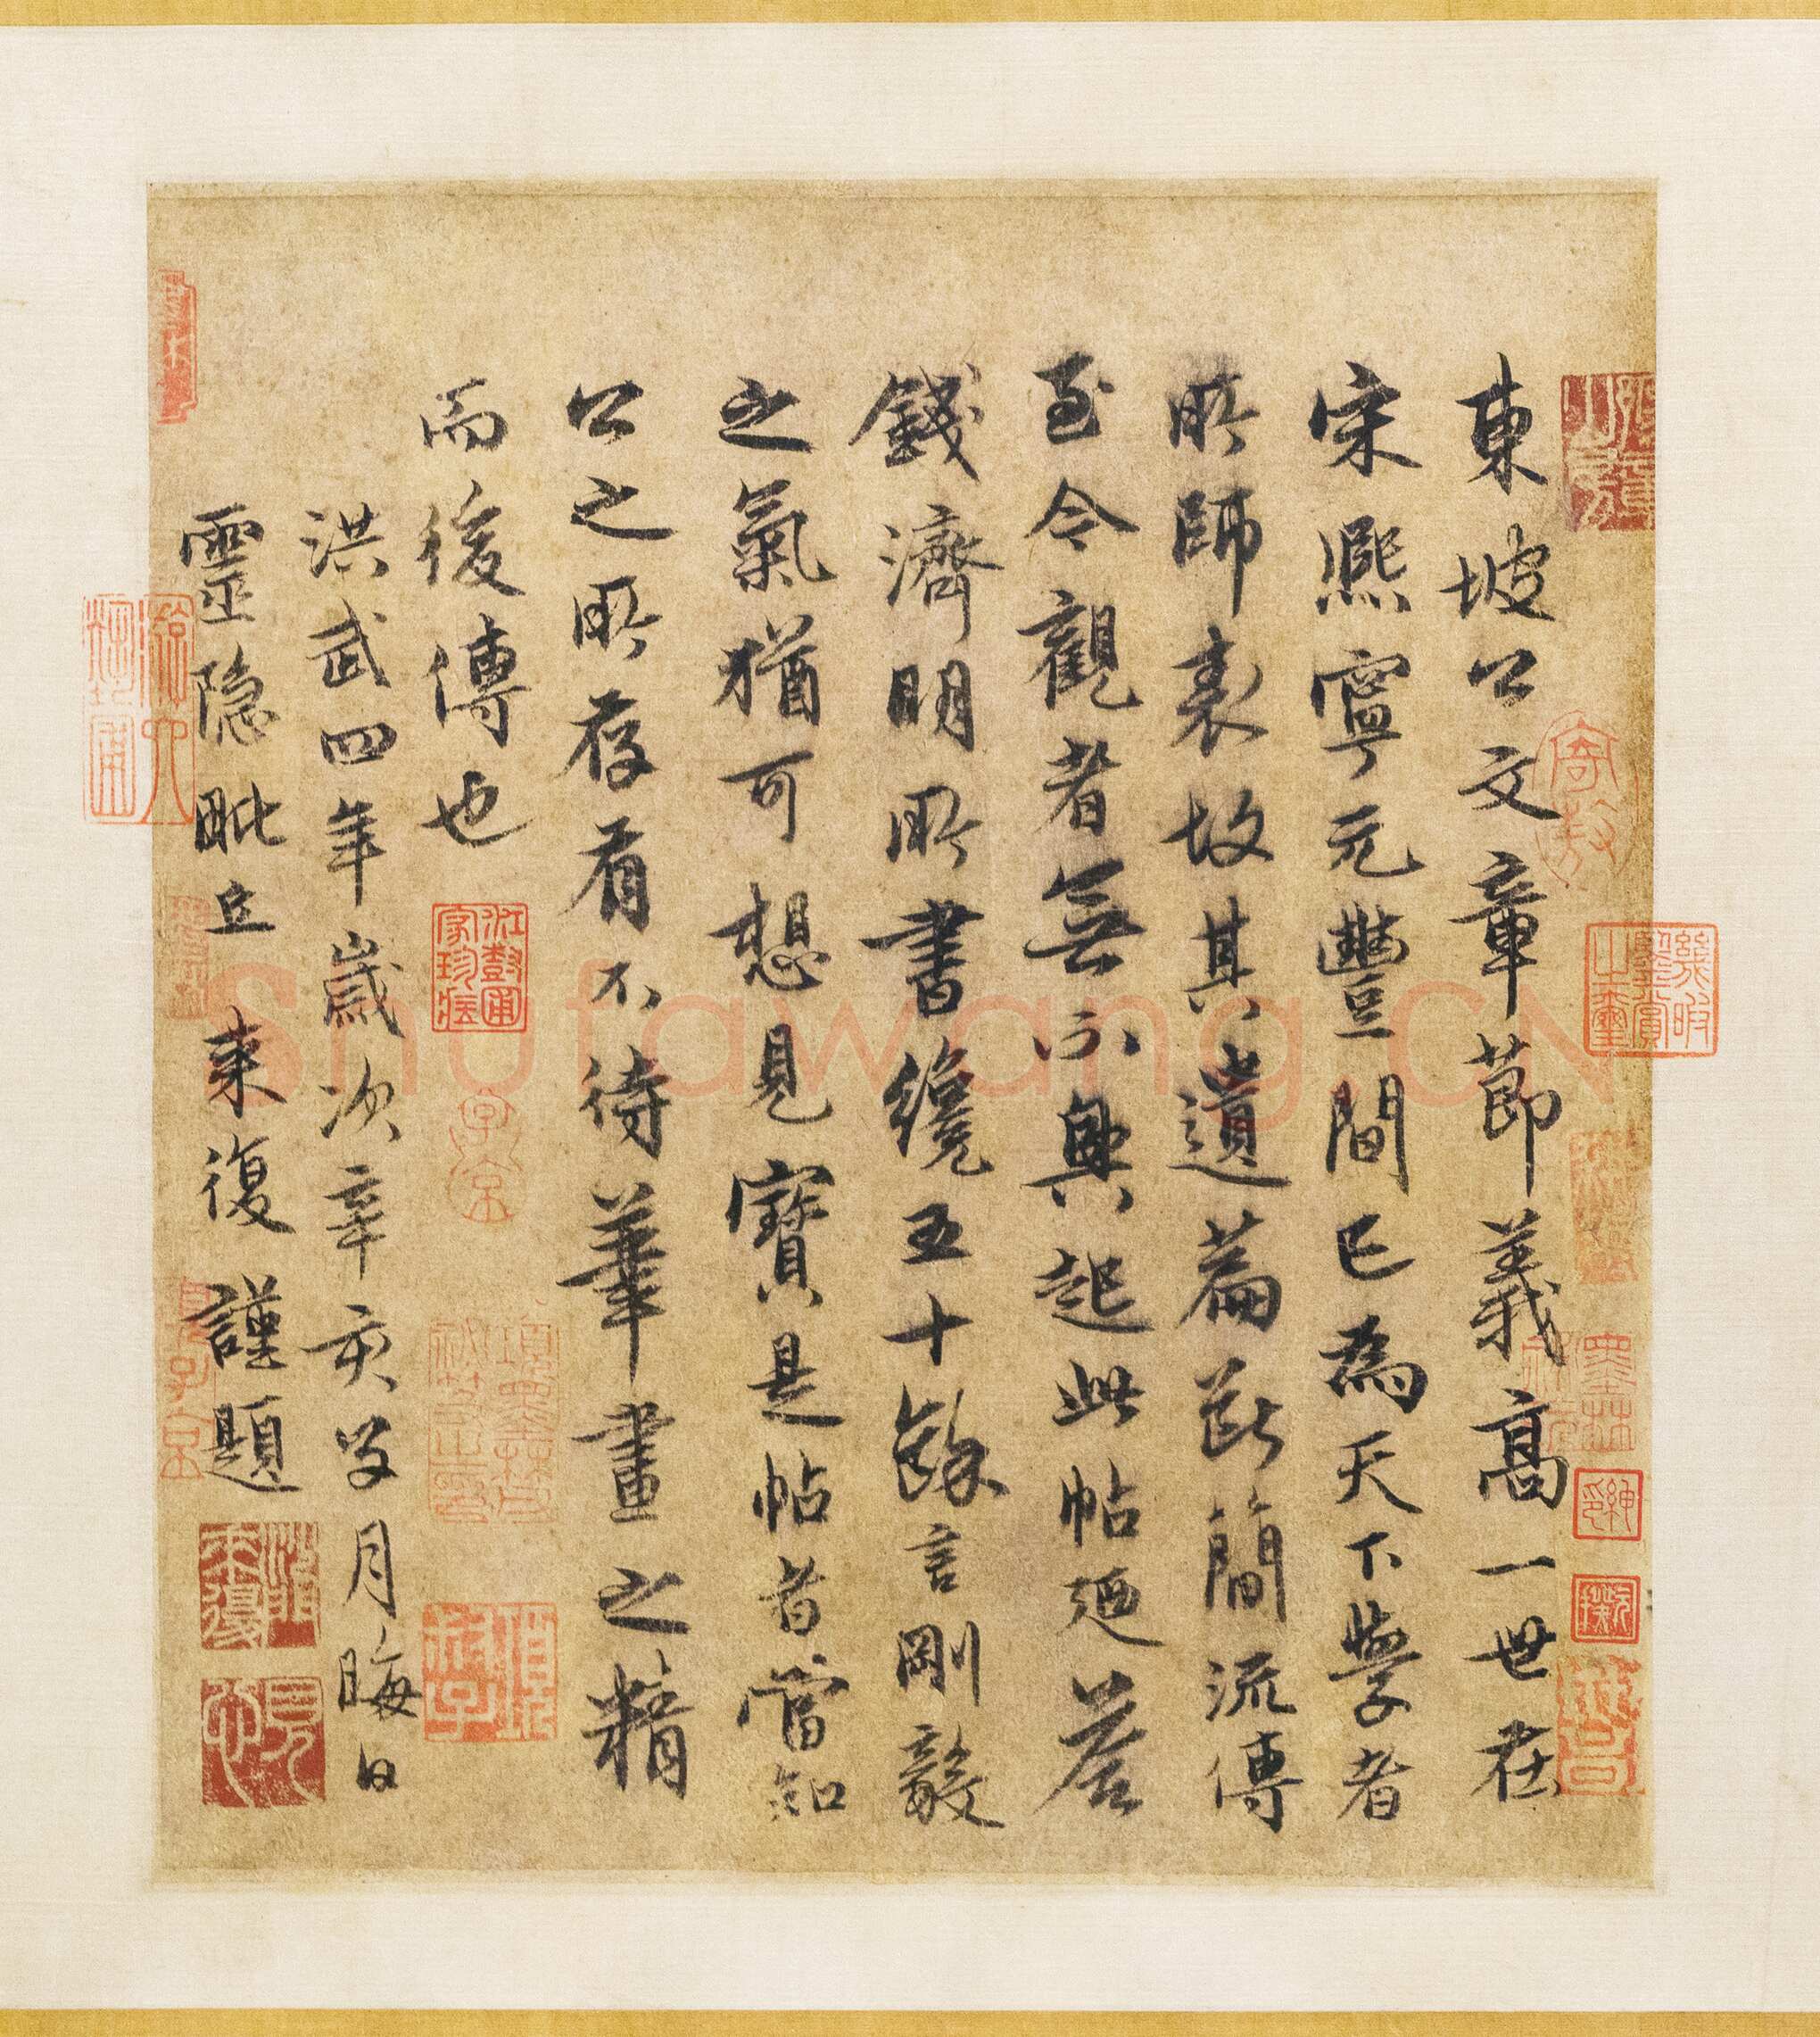 東坡公文章節義高一世在
宋熈寧元豐間已為天下學者
所師表故其遺篇斷簡流傳
至今觀者無不興起此帖廼荅
錢濟明所書纔五十餘言剛毅
之氣猶可想見寶是帖者當知
公之所存有不待筆畫之精
而後傳也
洪武四年歲次辛亥 月晦日
靈隐毗丘 来復謹題
Shufawang.CN